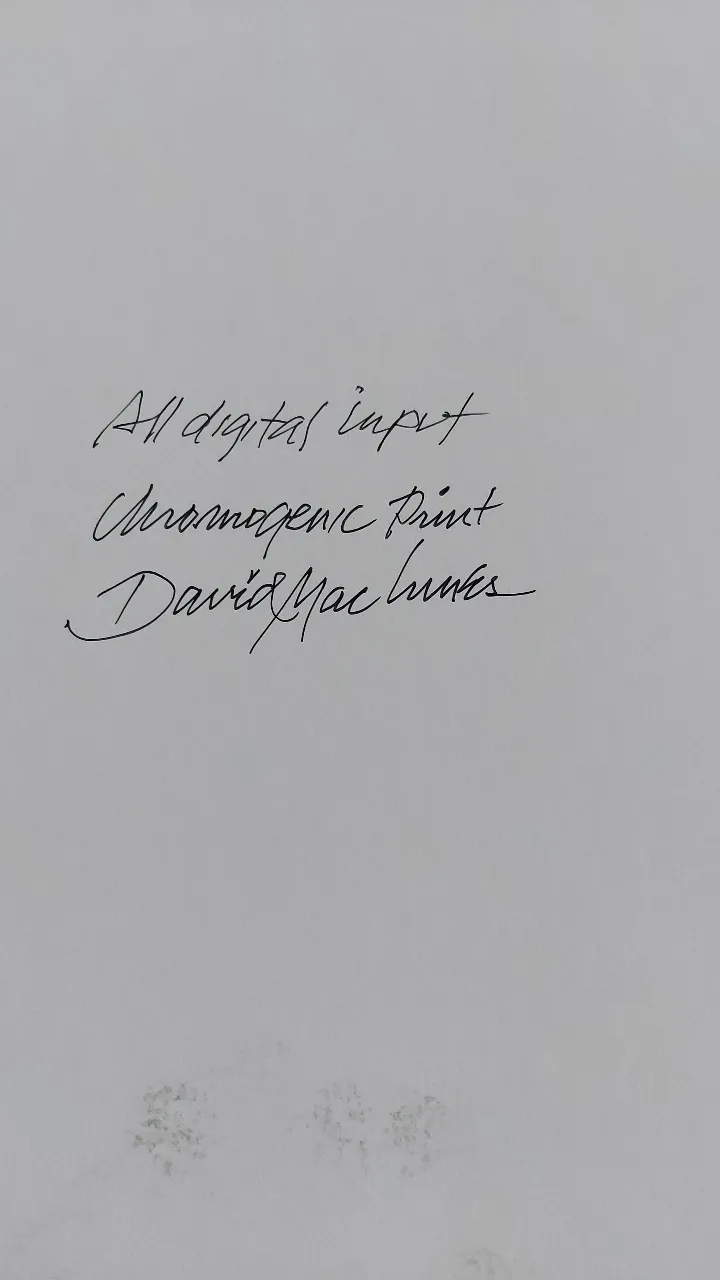 All digital input
Chromogenic Print
David Mac